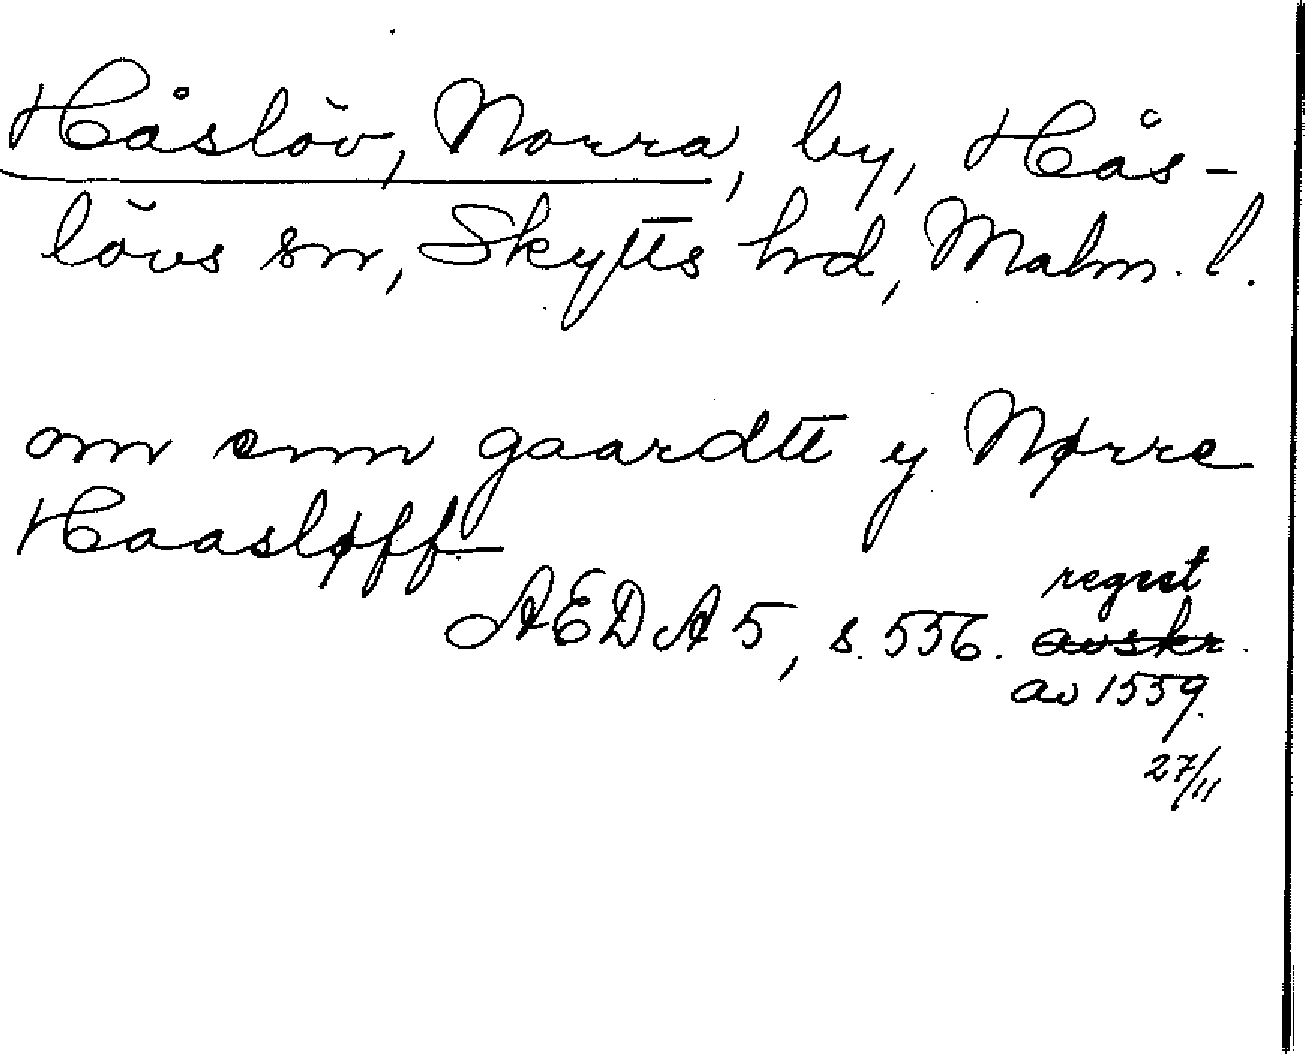 Håslöv, Norra, by, Hås-
lövs sn, Skytts hd, Malm. l.
om enn gaardtt y Nørre
Haasløff
AEDA 5, s. 556. regest
avskr.
av 1559.
27/11